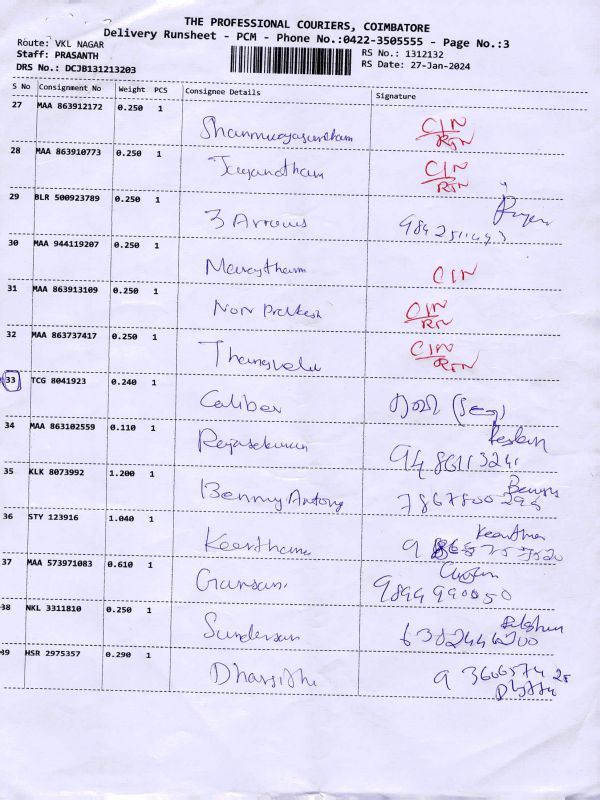 THE PROFESSIONAL COURIERS, COIMBATORE
Delivery Runsheet - PCM - Phone No.:0422-3505555 - Page No.:3
Route: VKL NAGAR
RS No.: 1312132
Staff: PRASANTH
RS Date: 27-Jan-2024
DRS No.: DCJB131213203
S No Consignment No Weight PCS Consignee Details Signature
27 MAA 863912172 0.250 1
CIN
RTN
28 MAA 863910773 0.250 1
CIN
RTN
29 BLR 500923789 0.250 1
3 Arrows
30 MAA 944119207 0.250 1
CIN
31 MAA 863913109 0.250 1
CIN
RTN
32 MAA 863737417 0.250 1
Thangvelu CIN
RTN
33 TCG 8041923 0.240 1
Caliber
34 MAA 863102559 0.110 1
Rajasekaran
35 KLK 8073992 1.200 1
Benny Antony 7867800296
36 STY 123916 1.040 1
Keerthana
37 MAA 573971083 0.610 1
9894990050
38 NKL 3311810 0.250 1
Sunderson 6382446200
39 HSR 2975357 0.290 1